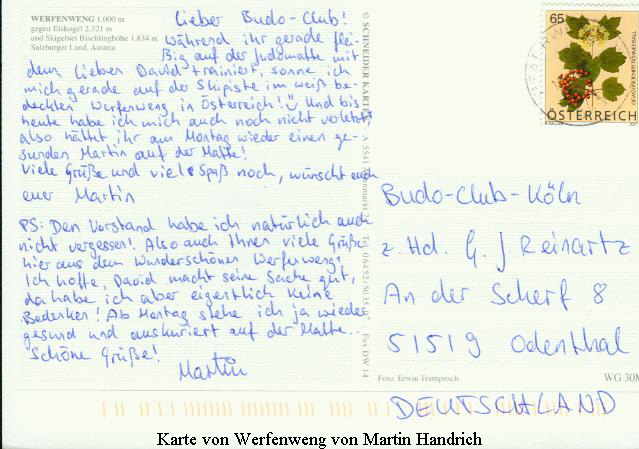 WERFENWENG 1.000 m
gegen Eiskogel 2.321 m
und Skigebiet Bischlinghöhe 1.834 m
Salzburger Land, Austria
Lieber Budo-Club!
Während ihr gerade flei-
ßig auf der Judomatte mit
dem lieben David trainiert, sonne ich
mich gerade auf der Skipiste im weiß be-
deckten Werfenweng in Österreich! Und bis
heute habe ich mich auch noch nicht verletzt,
also hättet ihr am Montag wieder einen ge-
sunden Martin auf der Matte!
Viele Grüße und viel Spaß noch, wünscht euch
euer Martin
PS: Den Vorstand habe ich natürlich auch
nicht vergessen! Also auch Ihnen viele Grüße
hier aus dem Wunderschönen Werfenweng!
Ich hoffe, David macht seine Sache gut,
da habe ich aber eigentlich keine
Bedenken! Ab Montag stehe ich ja wieder
gesund und auskuriert auf der Matte..
Schöne Grüße!
Martin
© SCHNEIDER KARTEN
Fax DW 14
65
ÖSTERREICH
Budo-Club-Köln
z. Hd. G. J Reinartz
An der Scherf 8
51519 Odenthal
DEUTSCHLAND
Foto: Erwin Trampitsch
WG 30M
Karte von Werfenweng von Martin Handrich